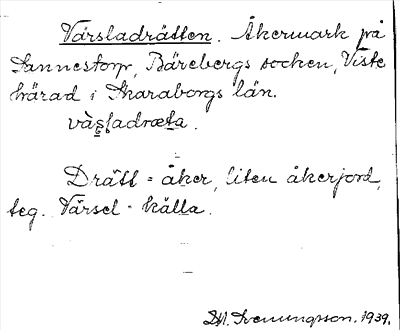 Värsladrätten. Åkermark på
Sannestorp, Bärebergs socken, Viste
härad i Skaraborgs län.
väsladræta.
Drätt = åker, liten åkerjord,
teg. Värsel = källa.
Svenningsson. 1939.